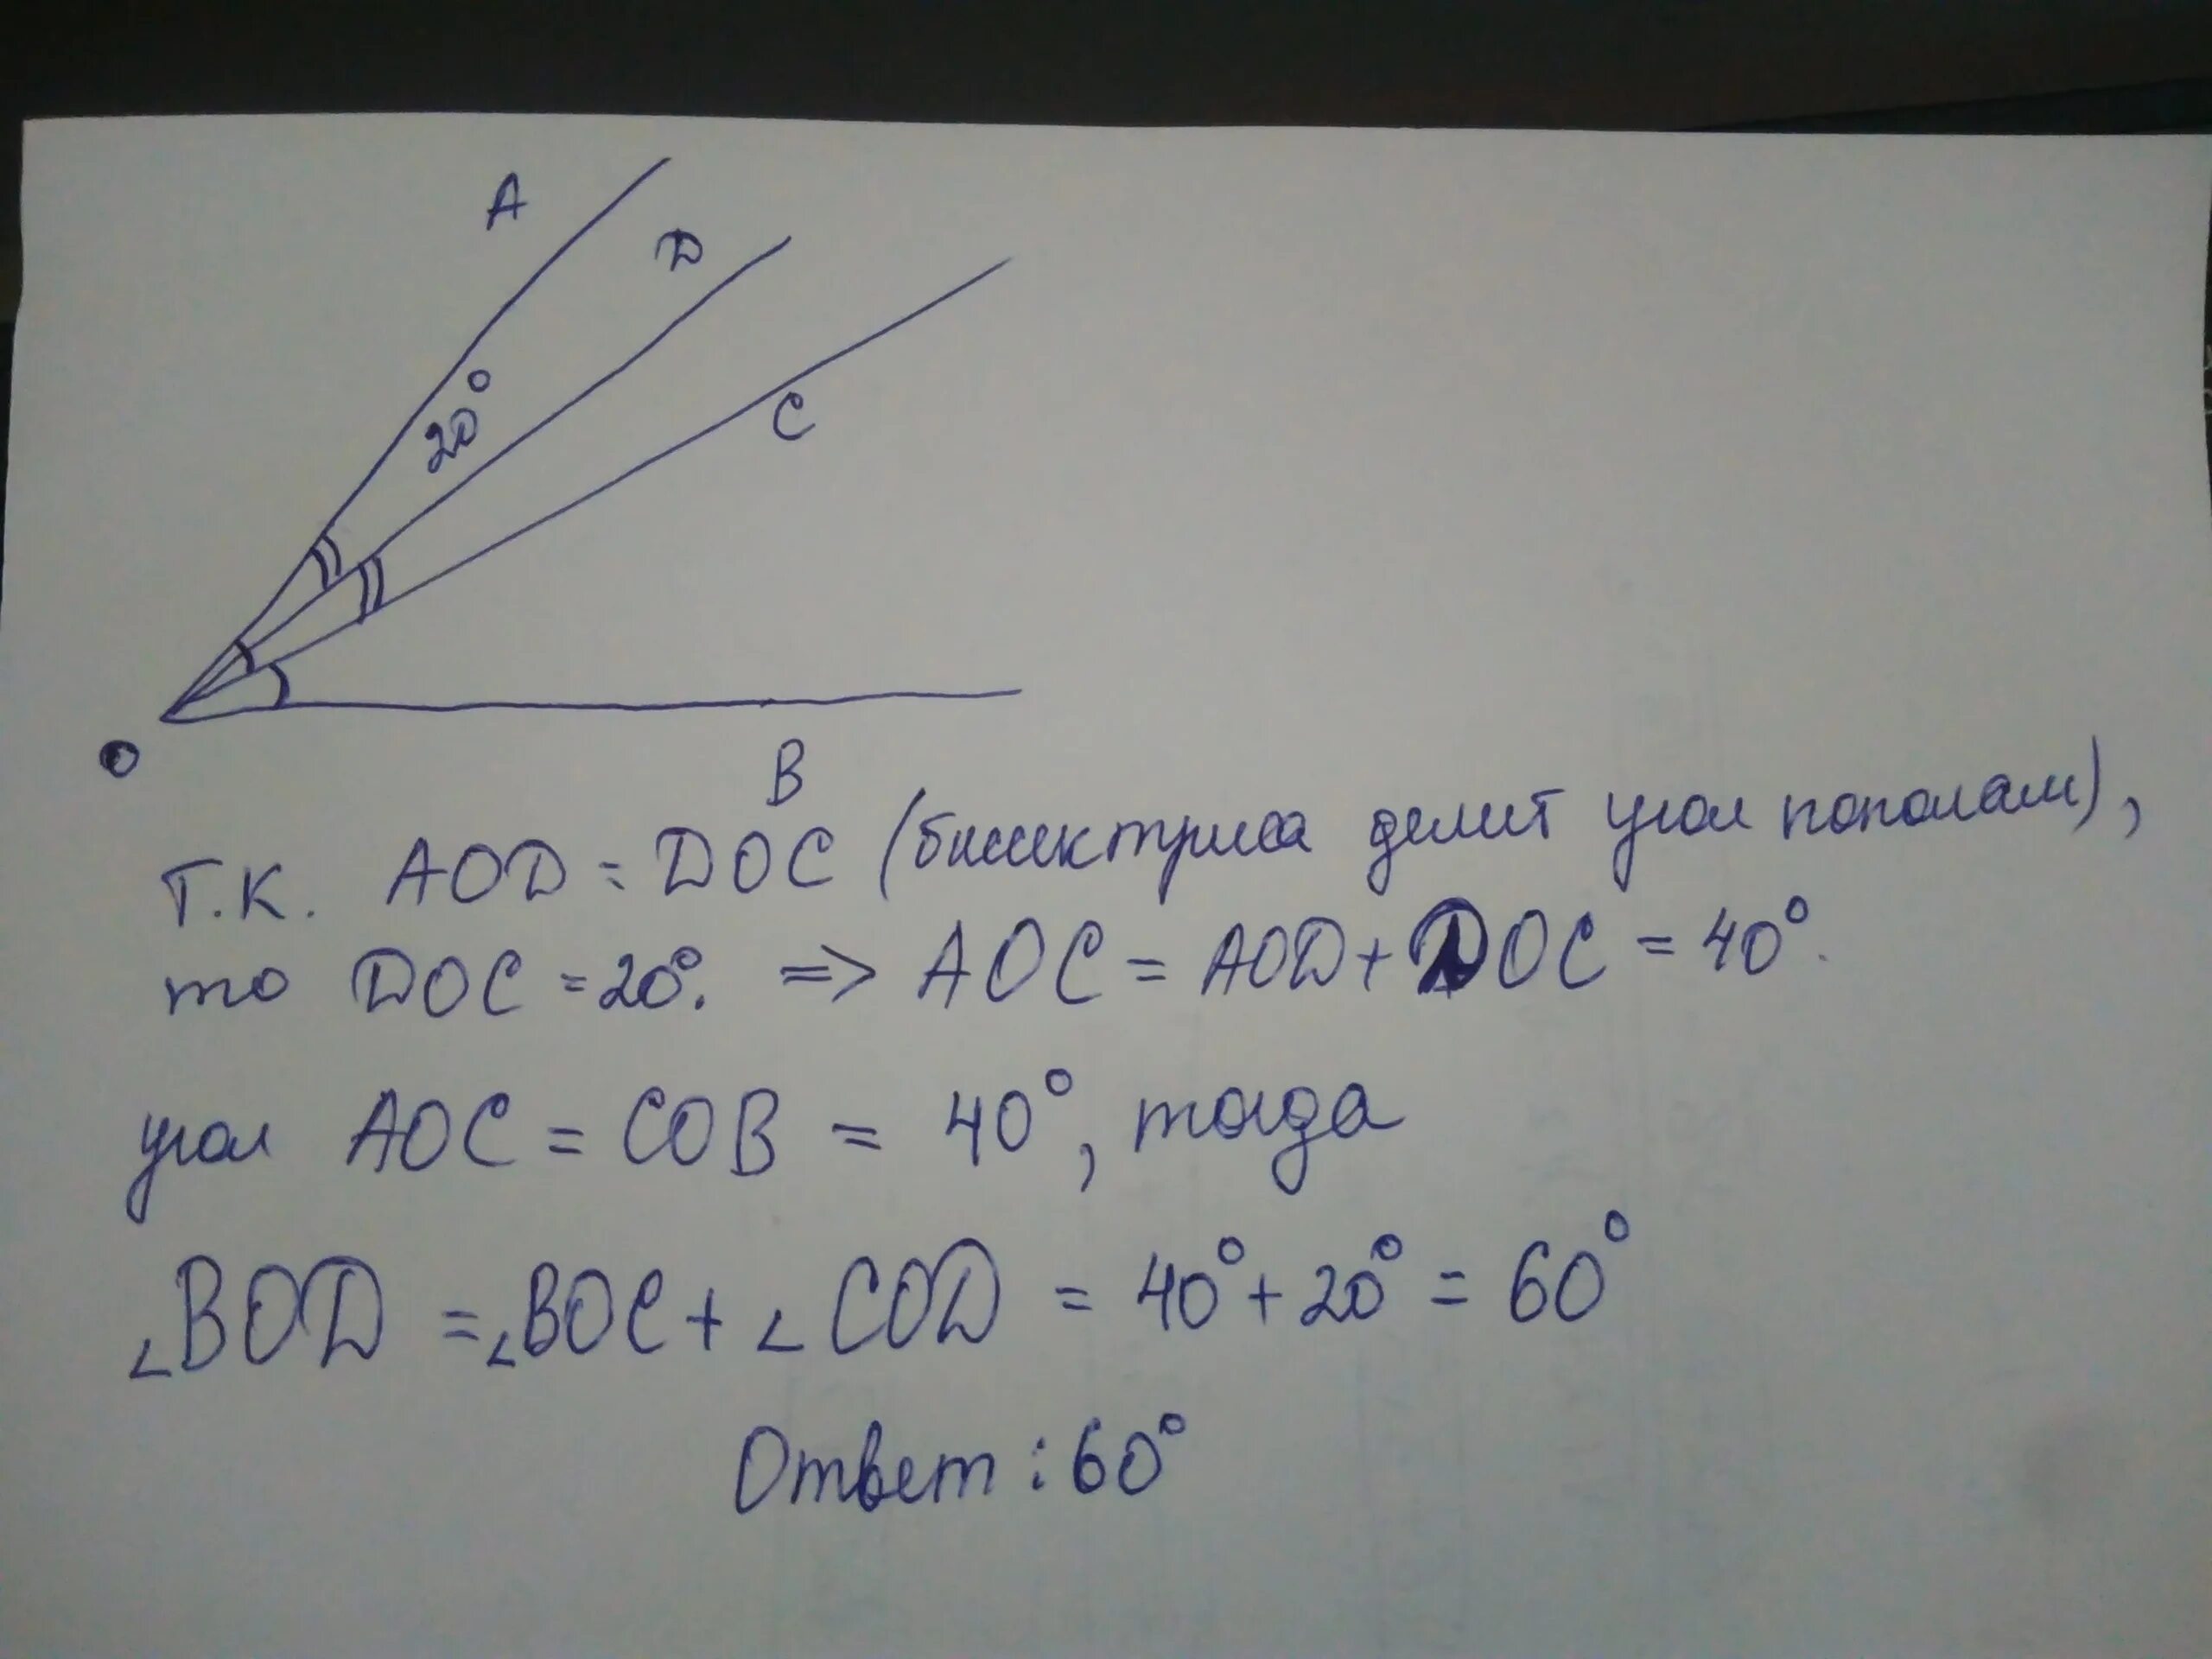 A
D
20°
C
O
B
т.к. AOD = DOC (биссектриса делит угол пополам),
то DOC = 20°. => AOC = AOD + DOC = 40°.
угол AOC = COB = 40°, тогда
∠BOD = ∠BOC + ∠COD = 40° + 20° = 60°
Ответ: 60°